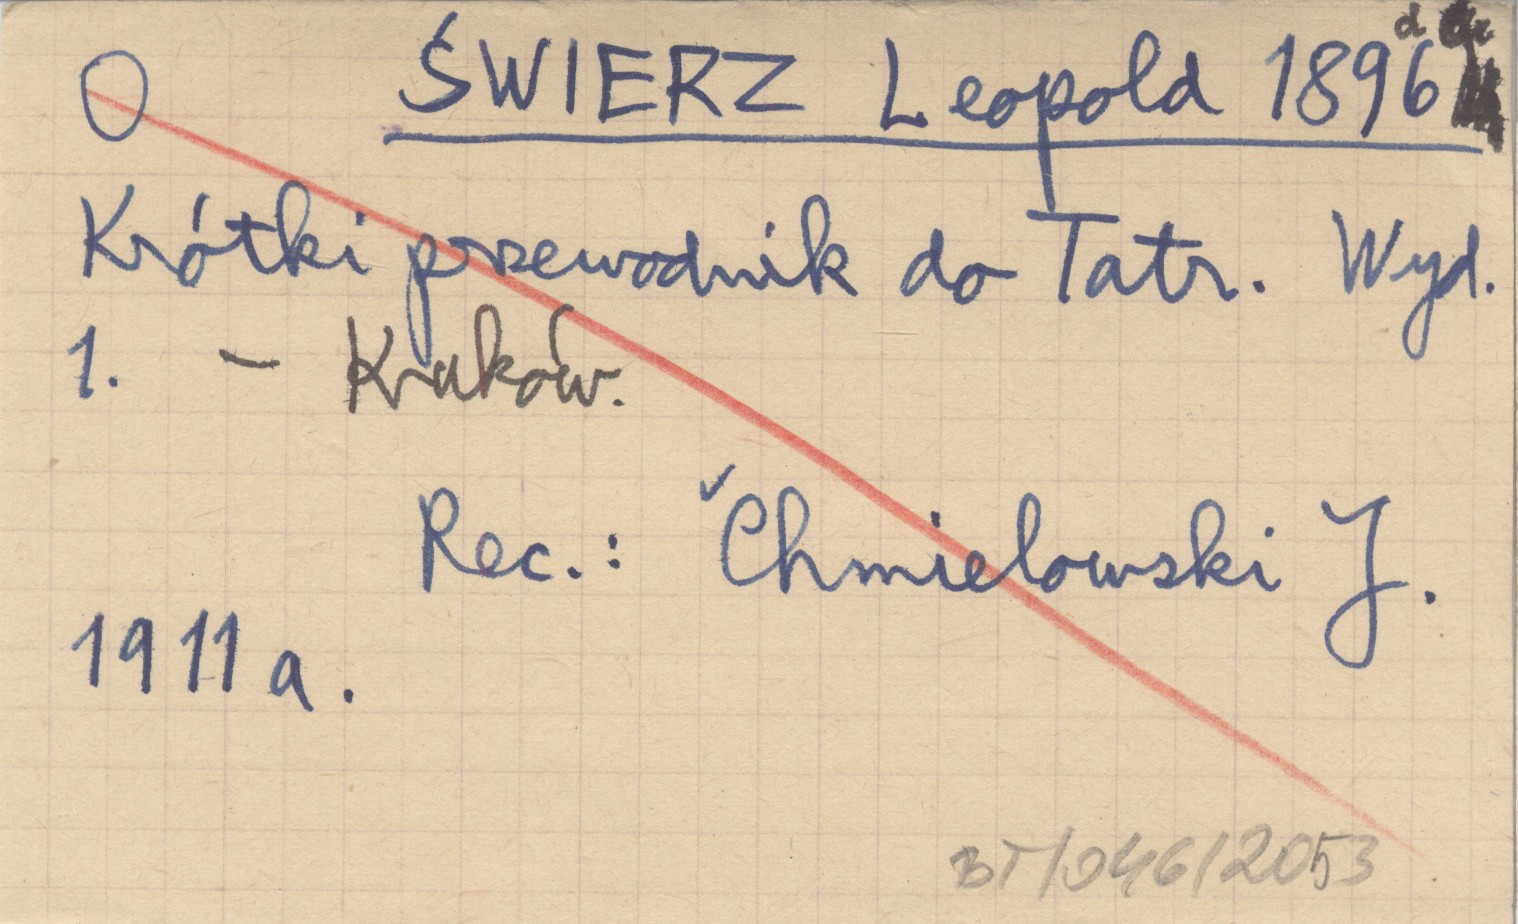 O ŚWIERZ Leopold 1896 d
Krótki przewodnik do Tatr. Wyd.
1. – Kraków.
Rec.: Chmielowski J.
1911a.
BT/046/2053